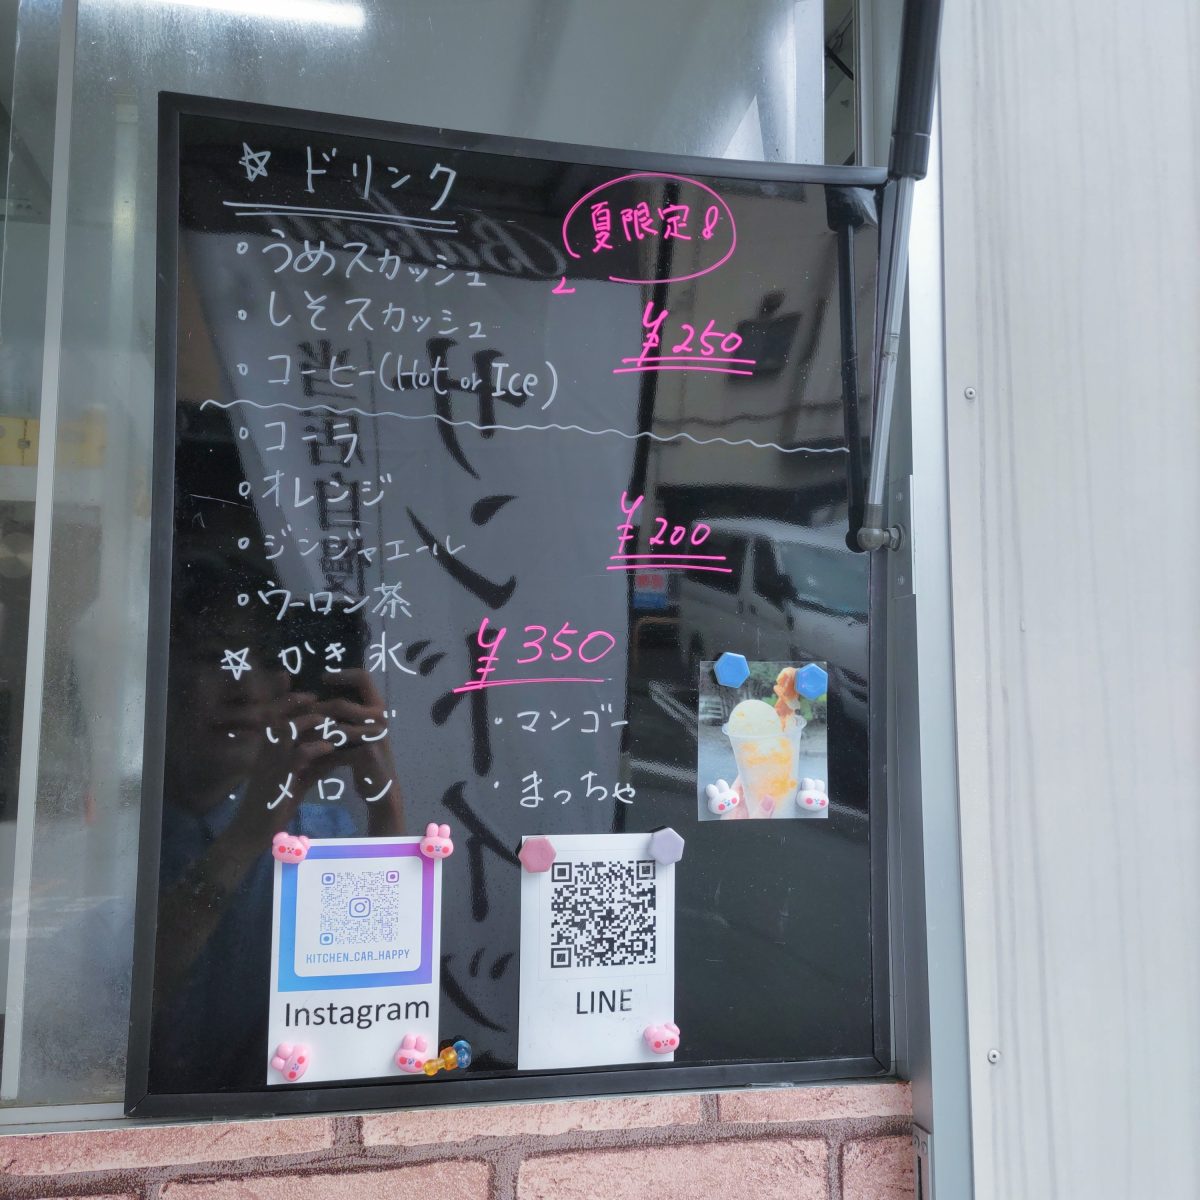 ☆ ドリンク
夏限定
・うめスカッシュ
・しそスカッシュ
¥250
・コーヒー(Hot or Ice)
・コーラ
・オレンジ
¥200
・ジンジャエール
・ウーロン茶
☆ かき氷 ¥350
・いちご ・マンゴー
・メロン ・まっちゃ
KITCHEN_CAR_HAPPY
Instagram
LINE